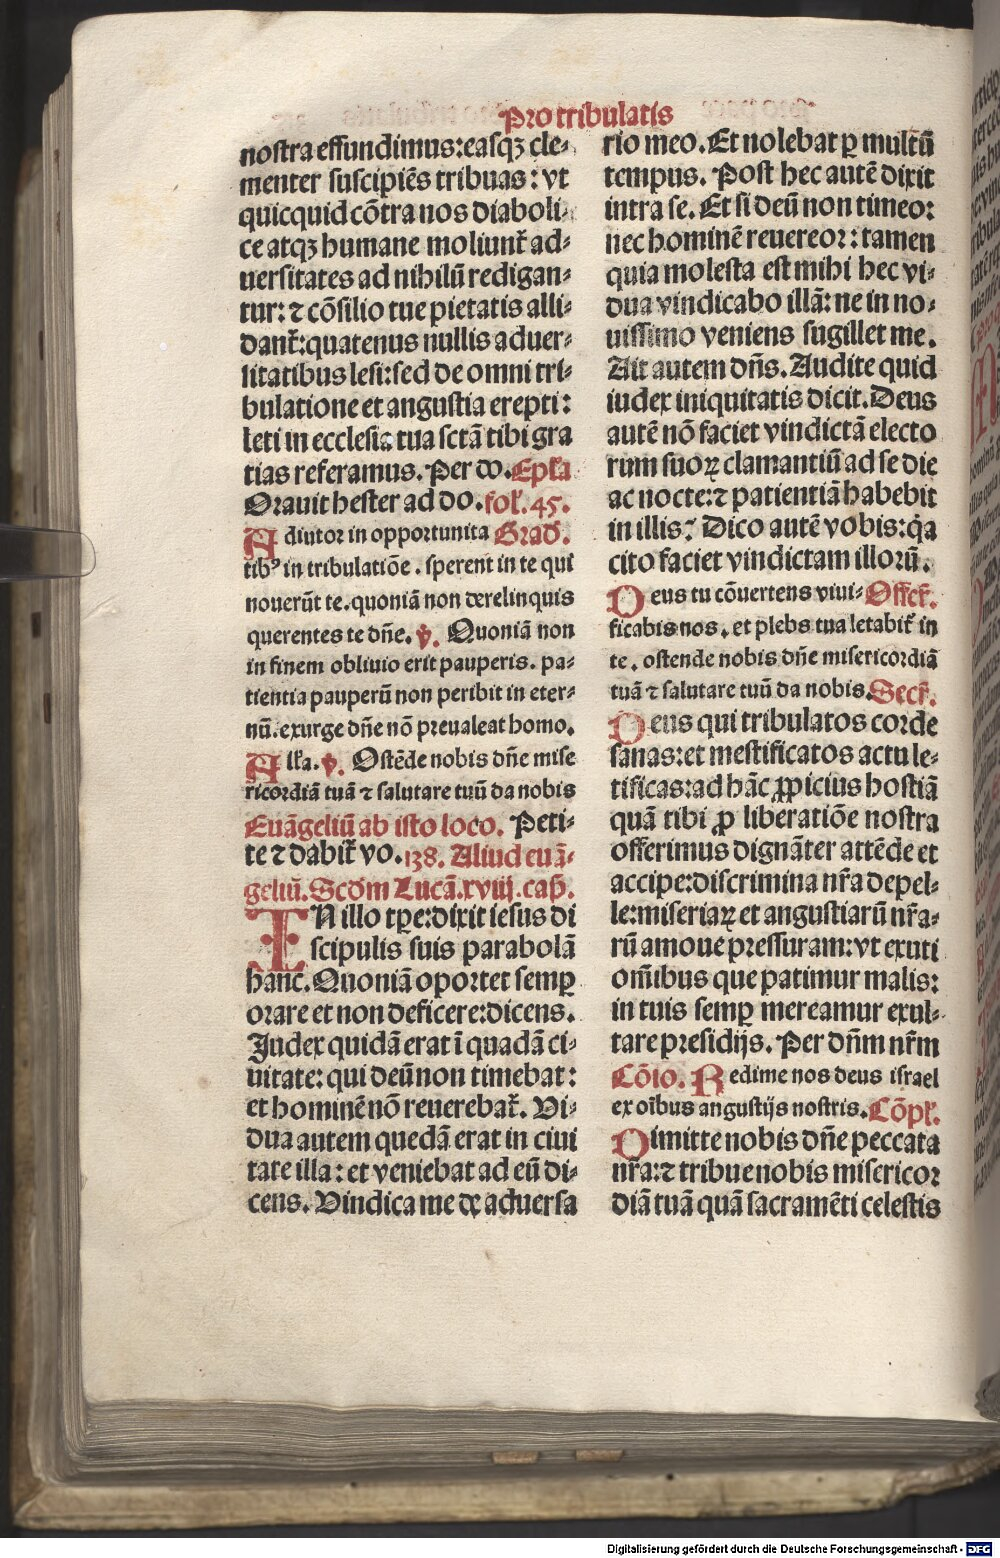 Pro tribulatis
nostra effundimus:easqꝫ cle-
menter suscipiēs tribuas: vt
quicquid cōtra nos diaboli-
ce atqꝫ humane moliunt᷑ ad-
uersitates ad nihilū redigan-
tur: ⁊ cōsilio tue pietatis alli-
dant᷑:quatenus nullis aduer-
sitatibus lesi:sed de omni tri-
bulatione et angustia erepti:
leti in ecclesia tua sctā tibi gra
tias referamus. Per do. Ep̄ła
Orauit hester ad do. fol᷑. 45.
Adiutor in opportunita Grad᷑.
tibꝰ in tribulatiōe. sperent in te qui
nouerūt te. quoniā non derelinquis
querentes te dn̄e. ꝟ. Quoniā non
in finem obliuio erit pauperis. pa-
tientia pauperū non peribit in eter-
nū. exurge dn̄e nō preualeat homo.
Alła. ꝟ. Ostēde nobis dn̄e mise
ricordiā tuā ⁊ salutare tuū da nobis
Euāgeliū ab isto loco. Peti-
te ⁊ dabit᷑ vo. 138. Aliud euā-
geliū. Scd᷑m Lucā. xviij. cap̄.
IN illo tꝑe: dixit iesus di
scipulis suis parabolā
hanc. Quoniā oportet semꝑ
orare et non deficere:dicens.
Judex quidā erat ī quadā ci-
uitate: qui deū non timebat:
et hominē nō reuerebat᷑. Vi-
dua autem quedā erat in ciui
tate illa: et veniebat ad eū di-
cens. Vindica me de aduersa
rio meo. Et nolebat ꝑ multū
tempus. Post hec autē dixit
intra se. Et si deū non timeo:
nec hominē reuereor: tamen
quia molesta est mihi hec vi-
dua vindicabo illā: ne in no-
uissimo veniens sugillet me.
Ait autem dn̄s. Audite quid
iudex iniquitatis dicit. Deus
autē nō faciet vindictā electo
rum suoꝝ clamantiū ad se die
ac nocte:⁊ patientiā habebit
in illis? Dico autē vobis: q̇a
cito faciet vindictam illorū.
Deus tu cōuertens viui- Offer᷑.
ficabis nos. et plebs tua letabit᷑ in
te. ostende nobis dn̄e misericordiā
tuā ⁊ salutare tuū da nobis. Secr᷑.
Deus qui tribulatos corde
sanas:et mestificatos actu le-
tificas:ad hāc ꝓpicius hostiā
quā tibi ꝓ liberatiōe nostra
offerimus dignāter attēde et
accipe:discrimina nr̄a depel-
le:miseriaꝝ et angustiarū nr̄a-
rū amoue pressuram: vt exuti
om̄ibus que patimur malis:
in tuis semꝑ mereamur exul-
tare presidijs. Per dn̄m nr̄m
Cōio. Redime nos deus israel
ex oībus angustijs nostris. Cōpl᷑.
Dimitte nobis dn̄e peccata
nr̄a:⁊ tribue nobis misericor
diā tuā quā sacramēti celestis
Digitalisierung gefördert durch die Deutsche Forschungsgemeinschaft - DFG